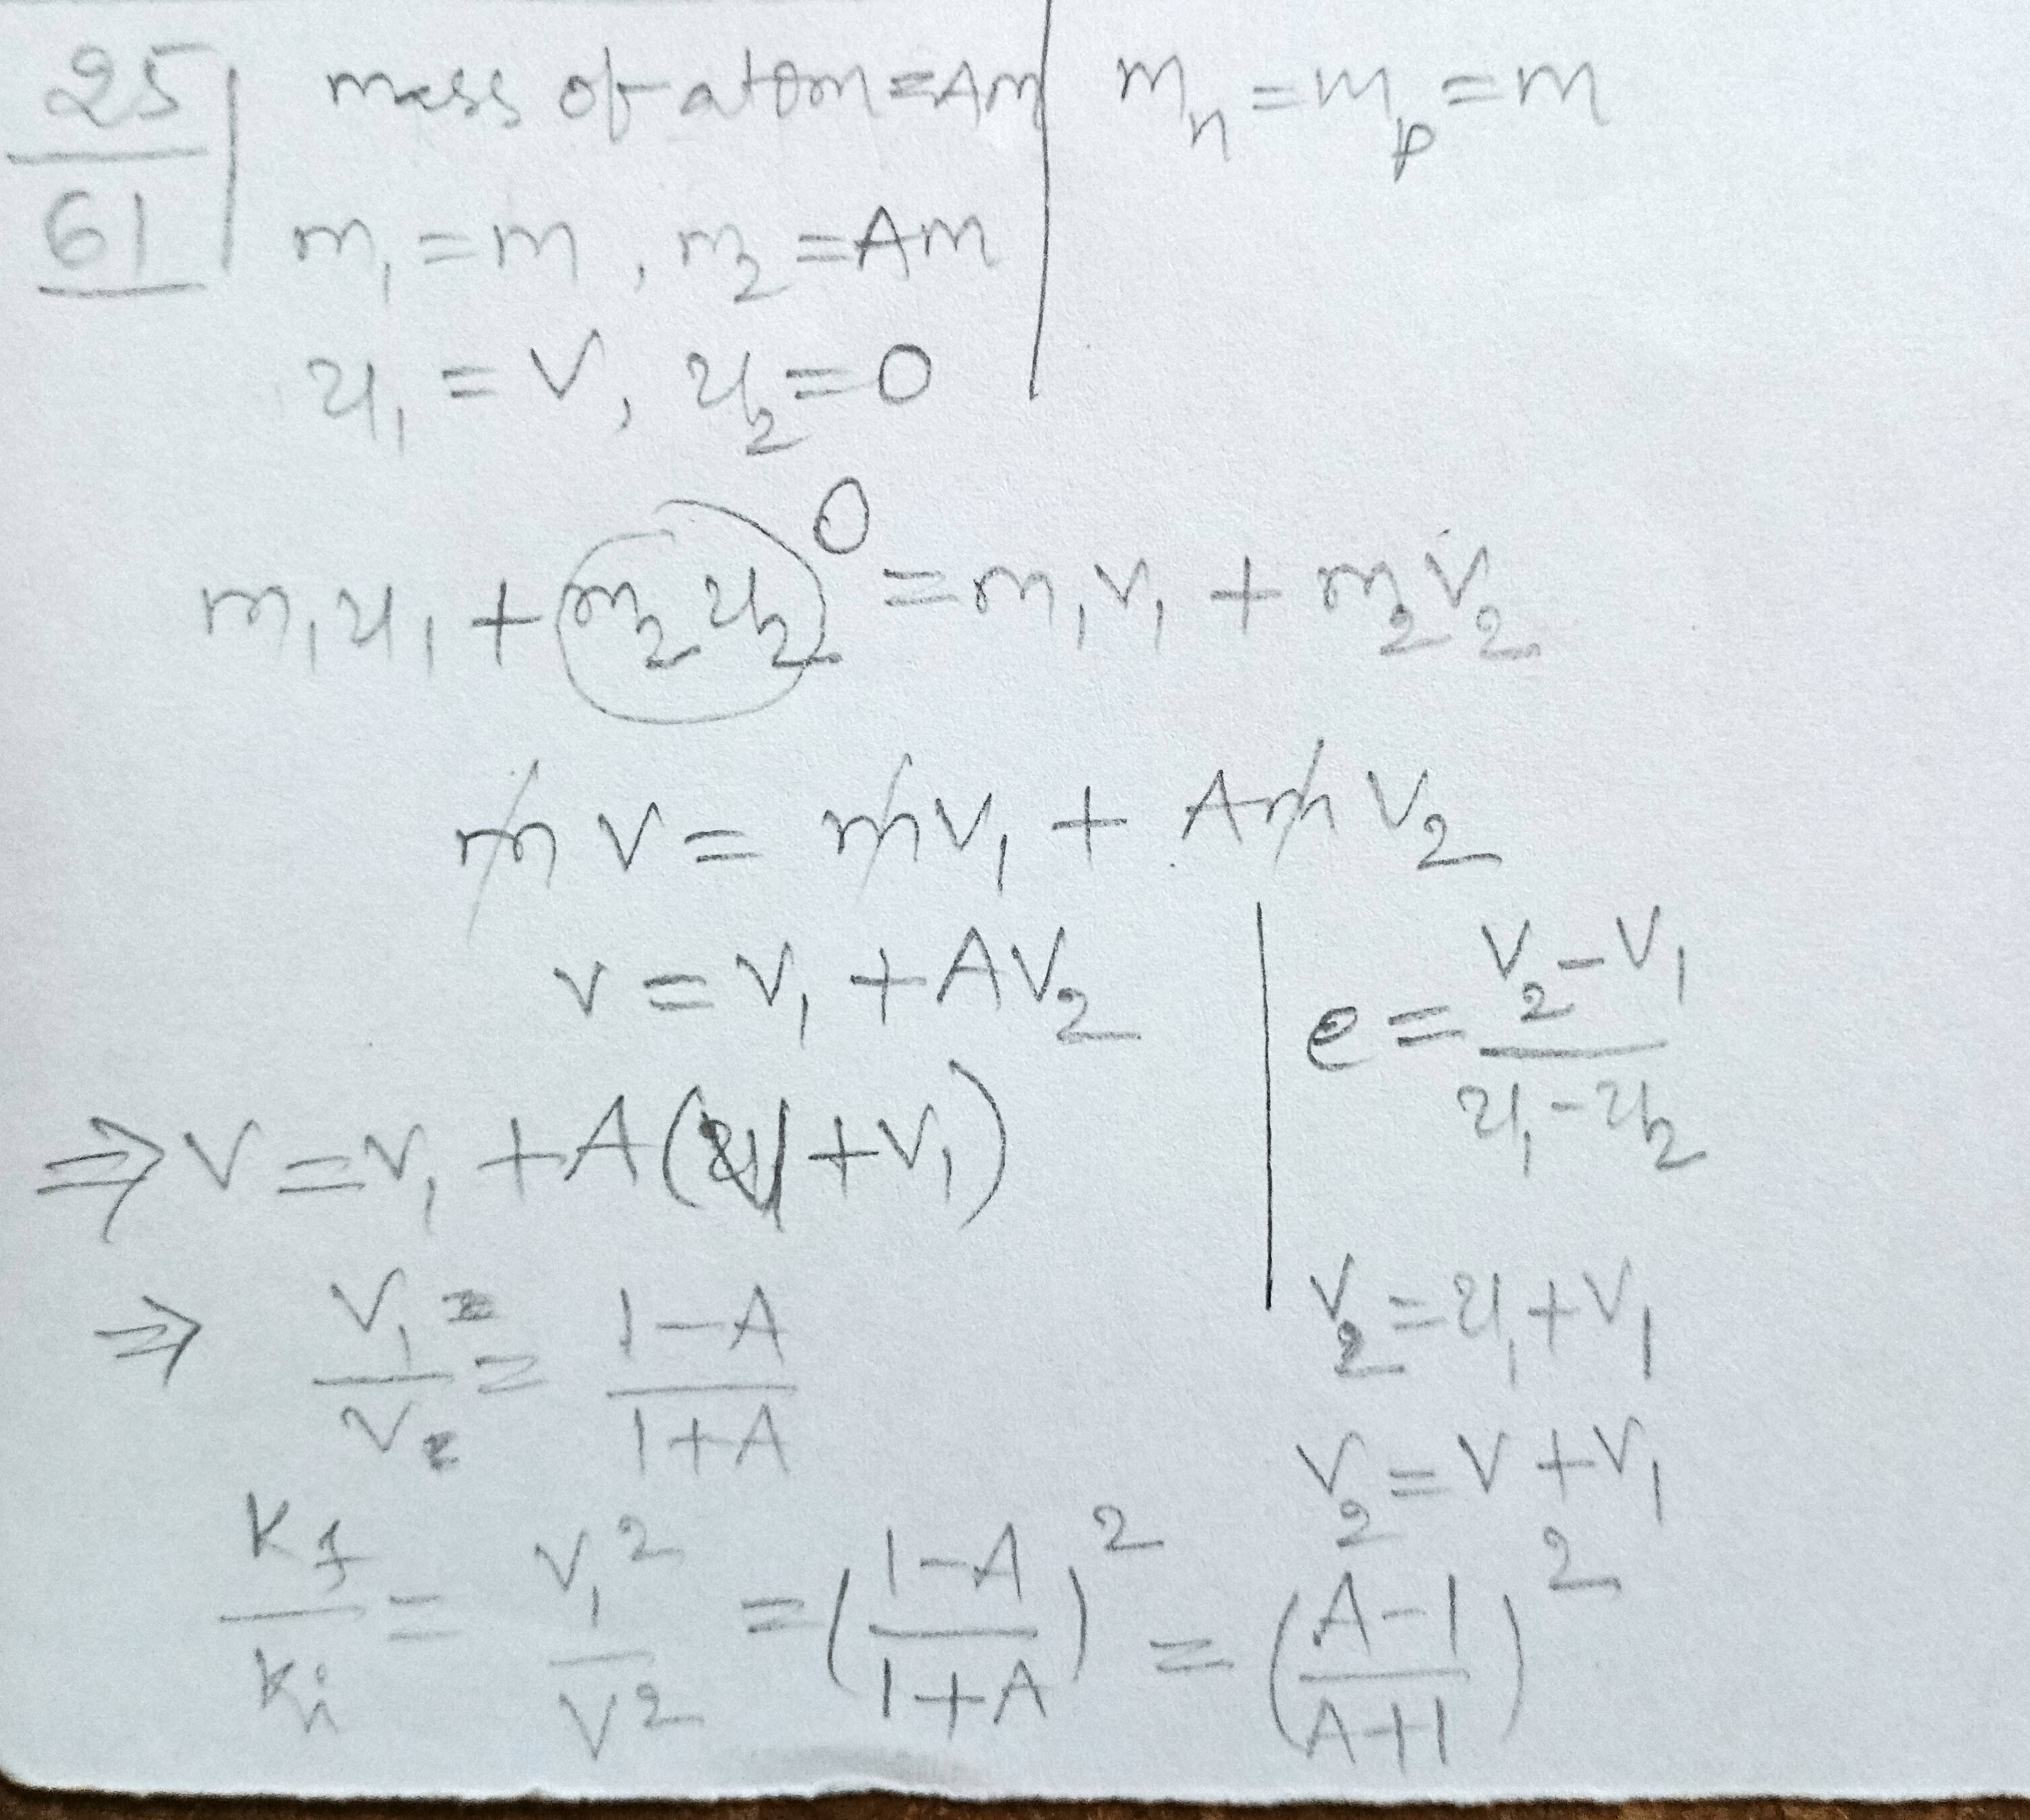 25/61 | mass of atom = Am | mₙ = mₚ = m
m₁ = m , m₂ = Am
u₁ = V, u₂ = 0
m₁u₁ + m₂u₂ 0 = m₁v₁ + m₂v₂
mv = mv₁ + Amv₂
v = v₁ + AV₂
⇒ V = v₁ + A( +v₁)
⇒ v₁/v = (1-A)/(1+A)
e = (v₂-v₁)/(u₁-u₂)
v₂ = u₁ + v₁
v₂ = v + v₁
Kf/Ki = v₁²/v² = ((1-A)/(1+A))² = ((A-1)/(A+1))²